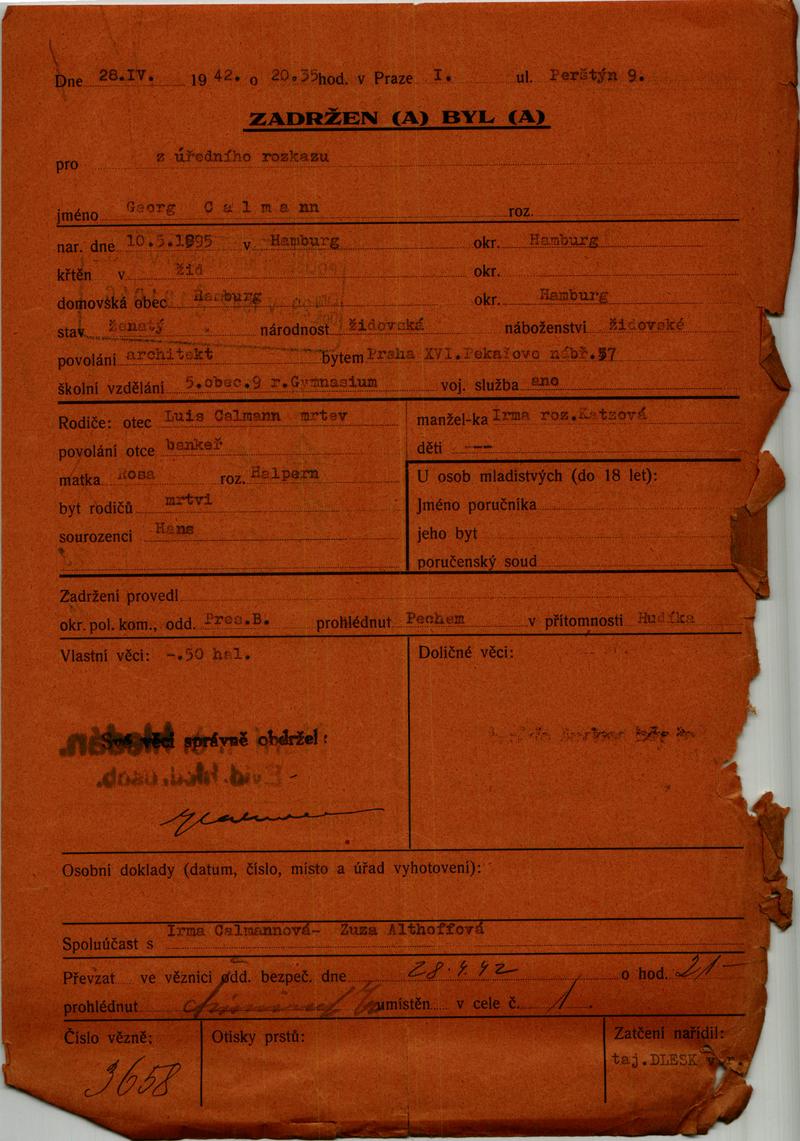 Dne 28.IV. 1942. o 20.35 hod. v Praze I. ul. Perštýn 9.
ZADRŽEN (A) BYL (A)
pro z úředního rozkazu
jméno Georg Calmann roz.
nar. dne 10.5.1895 v Hamburg okr. Hamburg
křtěn v žid okr.
domovská obec Hamburg okr. Hamburg
stav ženatý národnost židovská náboženství židovské
povolání architekt bytem Praha XVI. Pekařovo nábř. 57
školní vzdělání 5.obec.9 r.Gymnasium voj. služba ano
Rodiče: otec Luis Calmann mrtev
povolání otce bankeř
matka Rosa roz. Halpern
byt rodičů mrtvi
sourozenci Hans
manžel-ka Irma roz.Katzová
děti ---
U osob mladistvých (do 18 let):
Jméno poručníka
jeho byt
poručenský soud
Zadržení provedl
okr. pol. kom., odd. Pres.B. prohlédnut Pechem v přítomnosti Hudíka
Vlastní věci: -.50 hal.
Doličné věci:
Své věci správně obdržel:
Osobní doklady (datum, číslo, místo a úřad vyhotovení):
Spoluúčast s Irma Calmannová- Zuza Althoffová
Převzat ve věznici odd. bezpeč. dne 28.4.42 o hod. 21-
prohlédnut umístěn v cele č. 1.
Číslo vězně:
3658
Otisky prstů:
Zatčení nařídil:
taj.DLESK v.r.